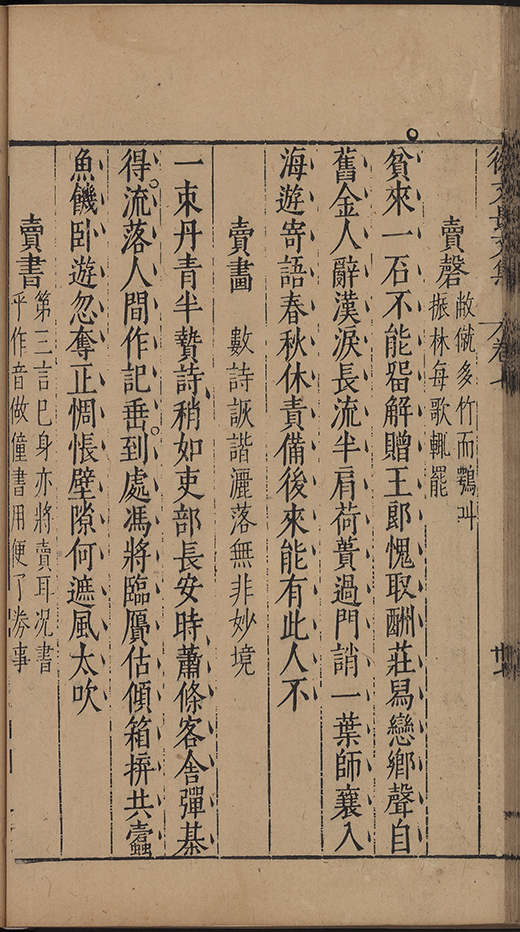 徐文長文集 卷七 廿
賣磬
敝僦多竹而鶚叫
振林每歌輒罷
貧來一石不能畱解贈王郎愧取酬莊舄戀鄉聲自
舊金人辭漢淚長流半肩荷蕢過門誚一葉師襄入
海遊寄語春秋休責備後來能有此人不
賣畫 數詩詼諧灑落無非妙境
一束丹青半贄詩稍如吏部長安時蕭條客舍彈棊
得流落人間作記垂到處馮將臨贋估傾箱摒共蠹
魚饑卧遊忽奪正惆悵壁隙何遮風太吹
賣書
第三言巳身亦將賣耳况書
乎作音做僮書用便了券事